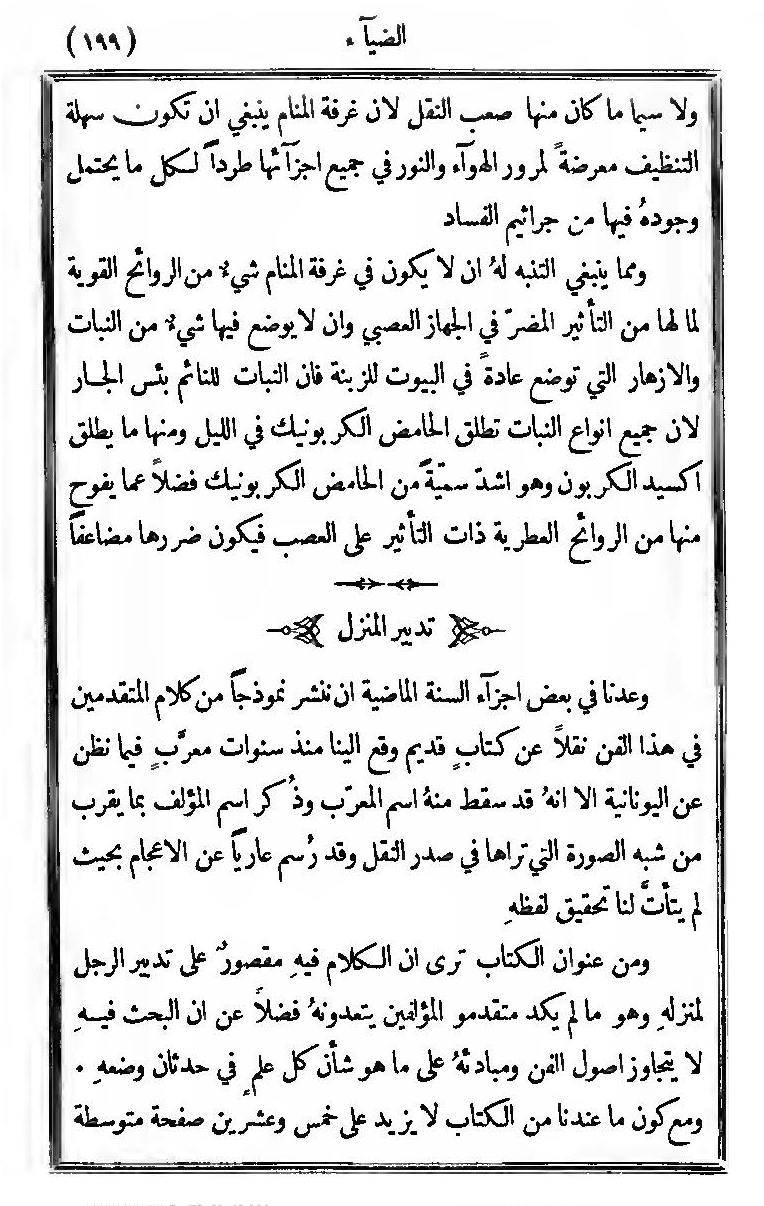 الضيآء (١٩٩)
ولا سيما ما كان منها صعب النقل لان غرفة المنام ينبغي ان تكون سهلة
التنظيف معرضةً لمرور الهوآء والنور في جميع اجزآئها طرداً لكل ما يحتمل
وجودهُ فيها من جراثيم الفساد
ومما ينبغي التنبه لهُ ان لا يكون في غرفة المنام شيءٌ من الروائح القوية
لما لها من التأثير المضرّ في الجهاز العصبي وان لا يوضع فيها شيءٌ من النبات
والازهار التي توضع عادةً في البيوت للزينة فان النبات للنائم بئس الجار
لان جميع انواع النبات تطلق الحامض الكربونيك في الليل ومنها ما يطلق
اكسيد الكربون وهو اشدّ سمّيّةً من الحامض الكربونيك فضلاً عما يفوح
منها من الروائح العطرية ذات التأثير على العصب فيكون ضررها مضاعفاً
تدبير المنزل
وعدنا في بعض اجزآء السنة الماضية ان ننشر نموذجاً من كلام المتقدمين
في هذا الفن نقلاً عن كتابٍ قديم وقع الينا منذ سنوات معرَّبٍ فيما نظن
عن اليونانية الا انهُ قد سقط منهُ اسم المعرّب وذُكر اسم المؤلف بما يقرب
من شبه الصورة التي تراها في صدر النقل وقد رُسم عارياً عن الاعجام بحيث
لم يتأتَّ لنا تحقيق لفظهِ
ومن عنوان الكتاب ترى ان الكلام فيهِ مقصورٌ على تدبير الرجل
لمنزلهِ وهو ما لم يكد متقدمو المؤلفين يتعدونهُ فضلاً عن ان البحث فيهِ
لا يتجاوز اصول الفن ومبادئهُ على ما هو شأن كل علمٍ في حدثان وضعهِ .
ومع كون ما عندنا من الكتاب لا يزيد على خمس وعشرين صفحة متوسطة